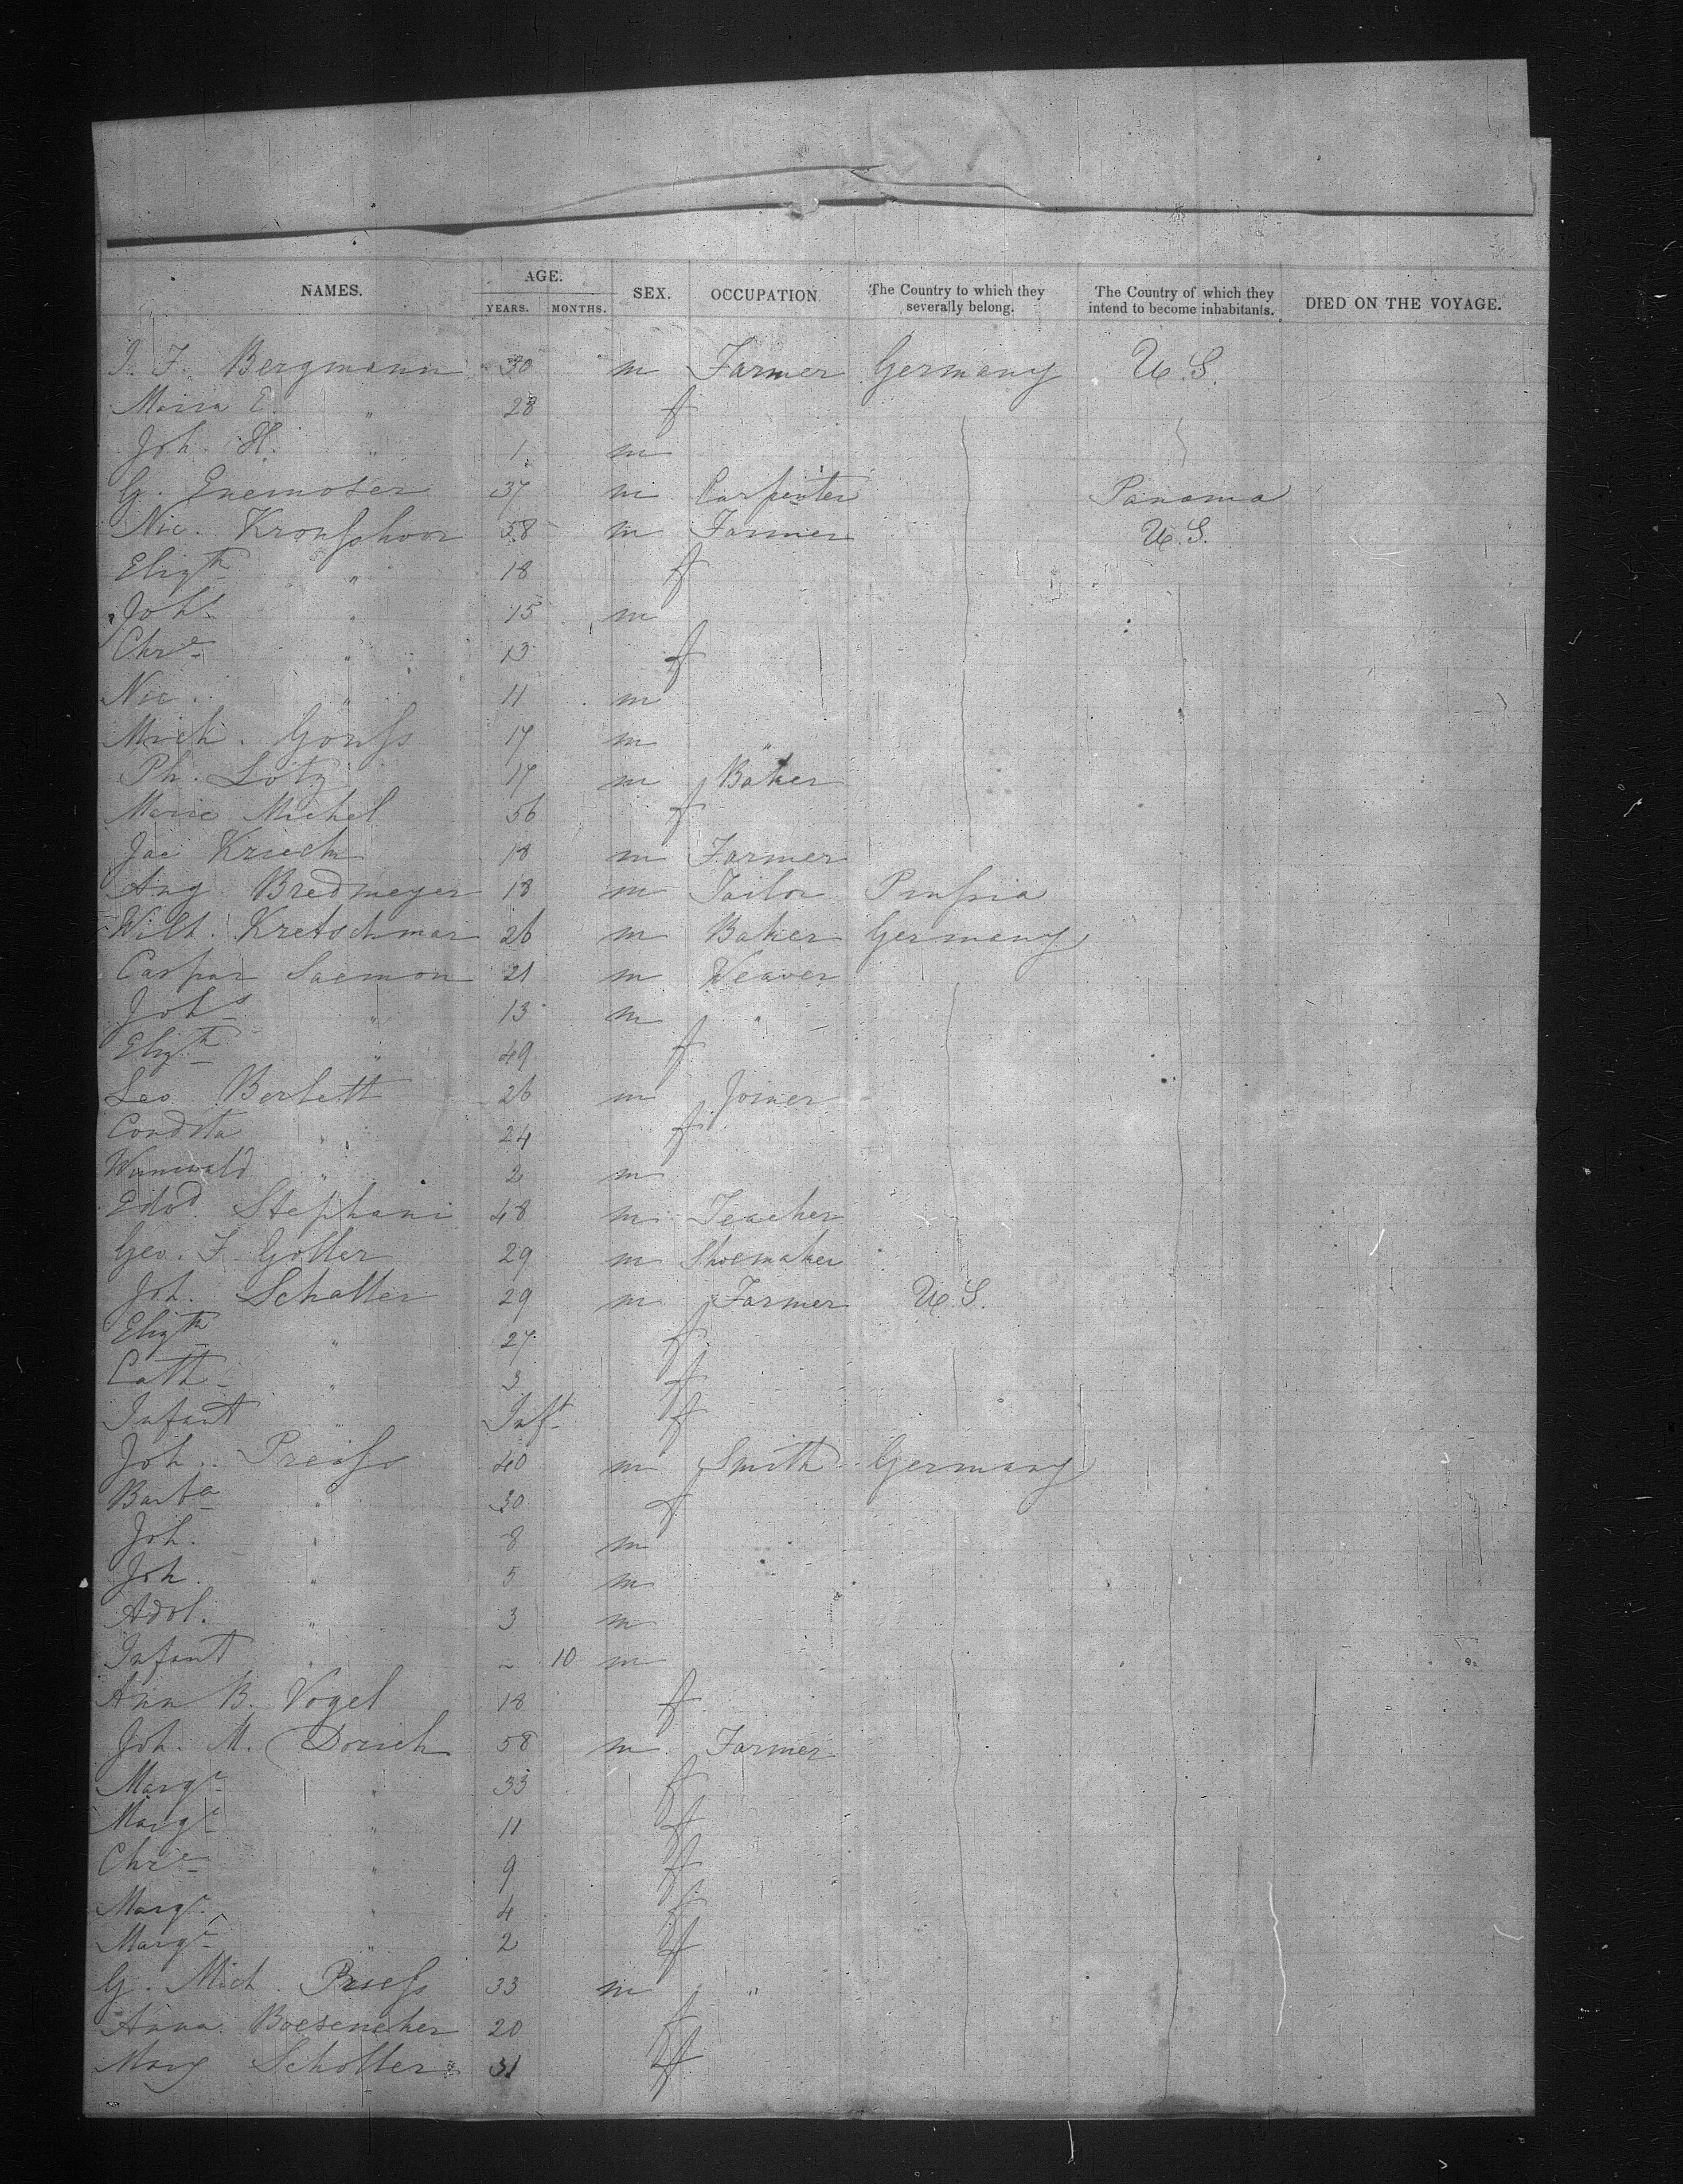 NAMES. AGE. YEARS. MONTHS. SEX. OCCUPATION The Country to which they severally belong. The Country of which they intend to become inhabitants. DIED ON THE VOYAGE.
J. F. Bergmann 30 m Farmer Germany U.S.
Maria E. " 28 f
Joh. H. " 1 m
G. 37 m Carpenter Panama
Nic. 58 m Farmer U.S.
Elizth " 18 f
Johs " 15 m
Chre " 13 f
Nic. " 11 m
Mich. 17 m "
Ph. Lotz 17 m Baker
Marie Michel 56 f
Jac 18 m Farmer
Aug. Bredmeyer 18 m Tailor Prussia
Wilh. Kretschmar 26 m Baker Germany
Caspar Saemon 21 m Weaver
Johs " 13 m "
Elizth " 49 f
Leo Berlett 26 m Joiner
Condita " 24 f
" 2 m
Edod. Stephani 48 m Teacher
Geo. F. Goller 29 m Shoemaker
Joh. Schaller 29 m Farmer U.S.
Elizth " 27 f
Cath " 3 f
Infant " Inft f
Joh. Preiss 40 m Smith Germany
Barba " 30 f
Joh. " 8 m
Joh. " 5 m
Adol. " 3 m
Infant " - 10 m
Ann B. Vogel 18 f
Joh. M. Dorsch 58 m Farmer
Marge " 33 f
Marge " 11 f
Chre " 9 f
Marge " 4 f
Marge " 2 f
G. Mich. Priess 33 m "
Anna Boeseneker 20 f
Marg Scholler 31 f